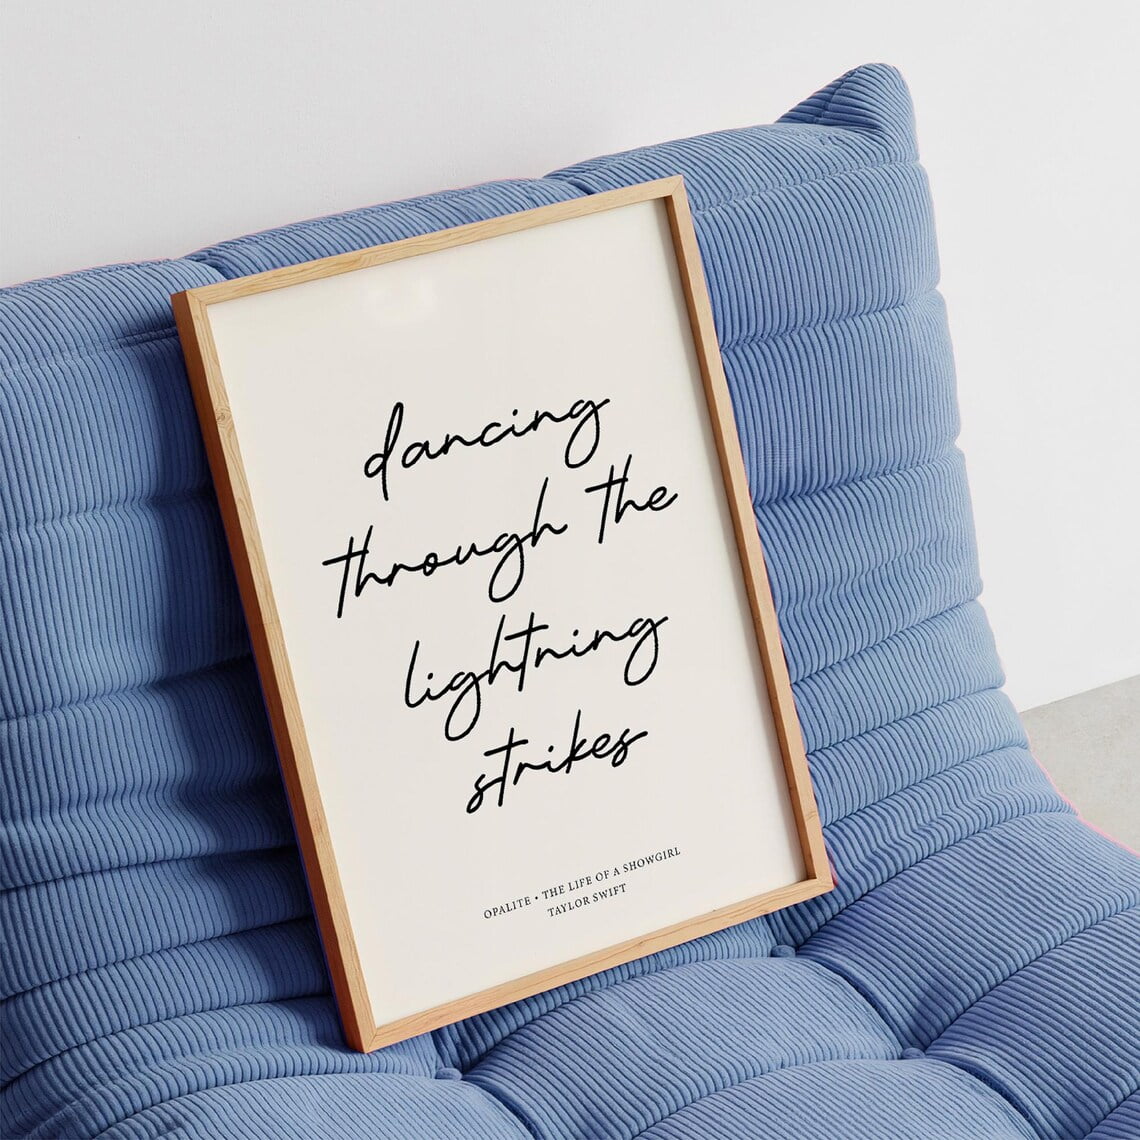 dancing
through the
lightning
strikes
OPALITE • THE LIFE OF A SHOWGIRL
TAYLOR SWIFT